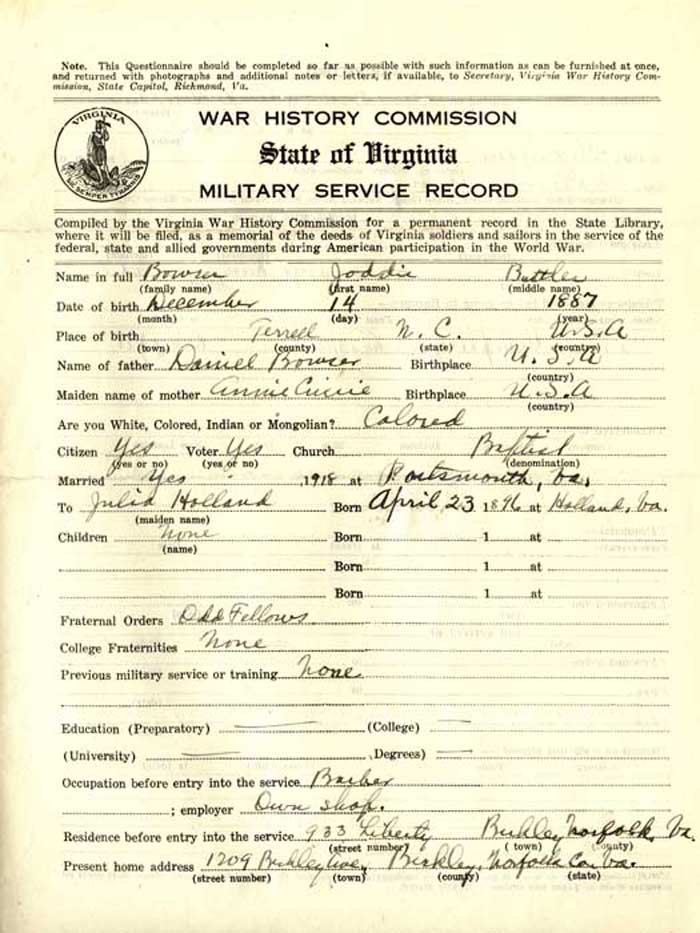 Note. This Questionnaire should be completed so far as possible with such information as can be furnished at once,
and returned with photographs and additional notes or letters, if available, to Secretary, Virginia War History Com-
mission, State Capitol, Richmond, Va.
VIRGINIA
SIC SEMPER TYRANNIS
WAR HISTORY COMMISSION
State of Virginia
MILITARY SERVICE RECORD
Compiled by the Virginia War History Commission for a permanent record in the State Library,
where it will be filed, as a memorial of the deeds of Virginia soldiers and sailors in the service of the
federal, state and allied governments during American participation in the World War.
Name in full Bowser Joddie Buttler
(family name) (first name) (middle name)
Date of birth December 14 1887
(month) (day) (year)
Place of birth Terrell N. C. U.S.A
(town) (county) (state) (country)
Name of father Daniel Bowser Birthplace U. S. A
(country)
Maiden name of mother Annie Birthplace U.S.A
(country)
Are you White, Colored, Indian or Mongolian? Colored
Citizen Yes Voter Yes Church Baptist
(yes or no) (yes or no) (denomination)
Married Yes 1918 at Portsmouth, Va.
To Julia Holland Born April 23 1896 at Holland, Va.
(maiden name)
Children None Born 1 at
(name)
Born 1 at
Born 1 at
Fraternal Orders Odd Fellows
College Fraternities None
Previous military service or training None
Education (Preparatory) (College)
(University) (Degrees)
Occupation before entry into the service Barber
; employer Own shop.
Residence before entry into the service 933 Liberty Berkley, Norfolk, Va.
(street number) (town) (county)
Present home address 1209 Berkley Ave, Berkley, Norfolk Co. Va.
(street number) (town) (county) (state)